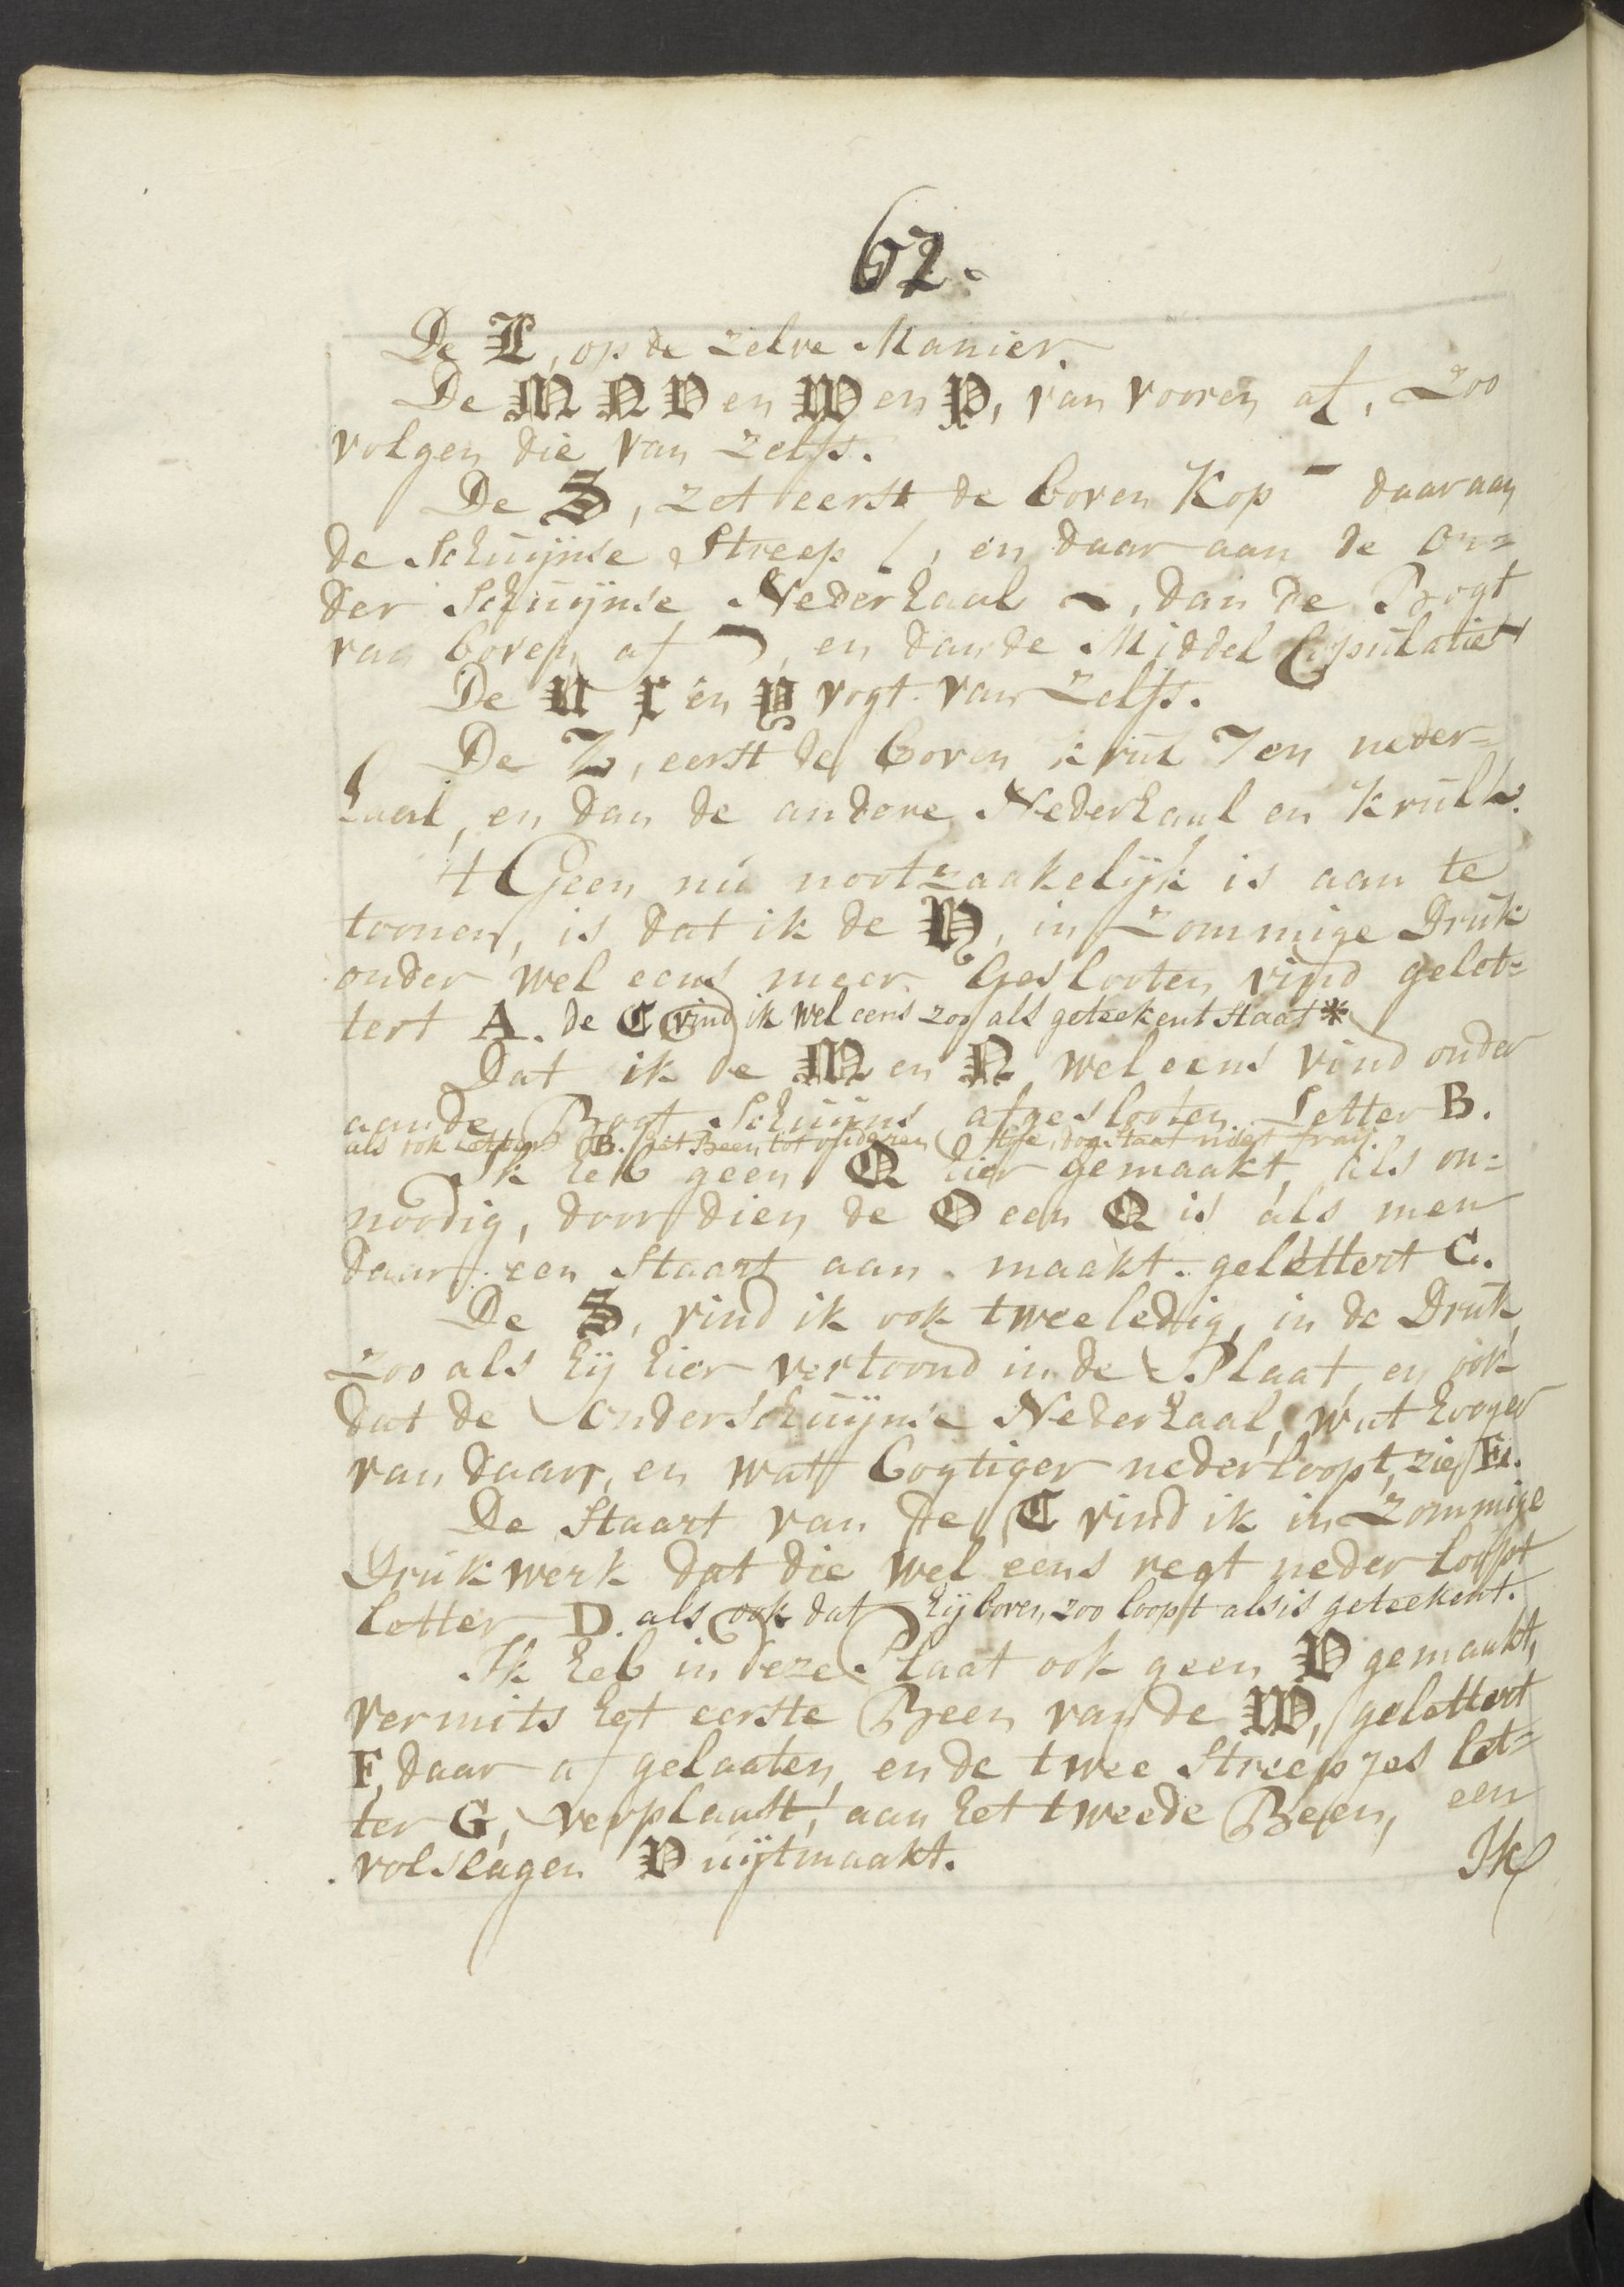 62.
De L, op de zelve Manier.
De M N V en W en P, van vooren af, zoo
volgen die van zelfs.
De S, zet eerst de boven Kop daar aan
de Schuijnse Streep /, en daar aan de on=
der Schuijnse Nederhaal ~, dan de Bogt
van boven af, en dan de Middel Copulatie
De U X en Y vogt van zelfs.
De Z, eerst de boven krul 7 en neder=
haal, en dan de andere Nederhaal en Krull
't Geen nu nootzaakelijk is aan te
toonen, is dat ik de H, in zommige Druk
onder wel eens meer geslooten vind gelet=
tert A. de C vind ik wel eens zoo als geteekent Staat *
Dat ik de M en N wel eens vind onder
aan de Bogt Schuijns afgeslooten Letter B.
als ook Letter B. het Been tot onderen dog staat niet fraij.
Ik heb geen Q hier gemaakt, als on=
noodig, door dien de O een Q is als men
daar een Staart aan maakt. gelettert C.
De S, vind ik ook twee ledig, in de Druk
zoo als hij hier vertoond in de Plaat en ook
dat de Onderschuijnse Nederhaal, wat hooger
van daan, en wat bogtiger nederloopt, zie E.
De Staart van de C vind ik in zommige
Drukwerk dat die wel eens regt neder loopt
letter D. als ook dat hij boven zoo loopt als is geteekent.
Ik heb in deze Plaat ook geen V gemaakt,
vermits het eerste Been van de W, gelettert
F, daar af gelaaten, en de twee Streepjes let=
ter G, verplaatst, aan het tweede Been, een
volslagen V uijtmaakt.
Ik